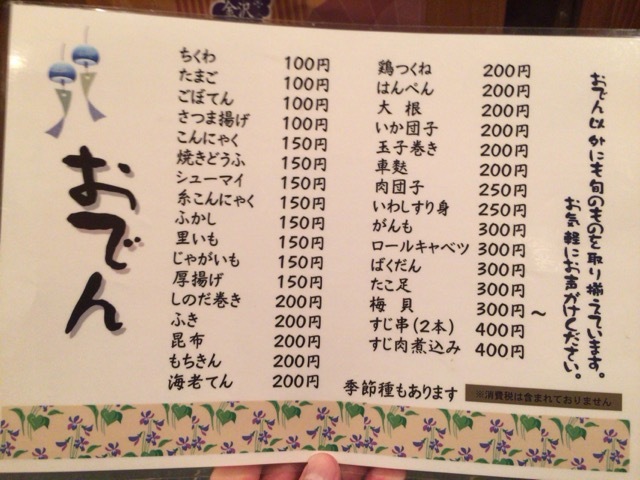 金沢
おでん
ちくわ 100円
たまご 100円
ごぼてん 100円
さつま揚げ 100円
こんにゃく 150円
焼きどうふ 150円
シューマイ 150円
糸こんにゃく 150円
ふかし 150円
里いも 150円
じゃがいも 150円
厚揚げ 150円
しのだ巻き 200円
ふき 200円
昆布 200円
もちきん 200円
海老てん 200円
鶏つくね 200円
はんぺん 200円
大根 200円
いか団子 200円
玉子巻き 200円
車麩 200円
肉団子 250円
いわしすり身 250円
がんも 300円
ロールキャベツ 300円
ばくだん 300円
たこ足 300円
梅貝 300円～
すじ串(2本) 400円
すじ肉煮込み 400円
季節種もあります
※消費税は含まれておりません
おでん以外にも旬のものを取り揃えています。
お気軽にお声がけください。